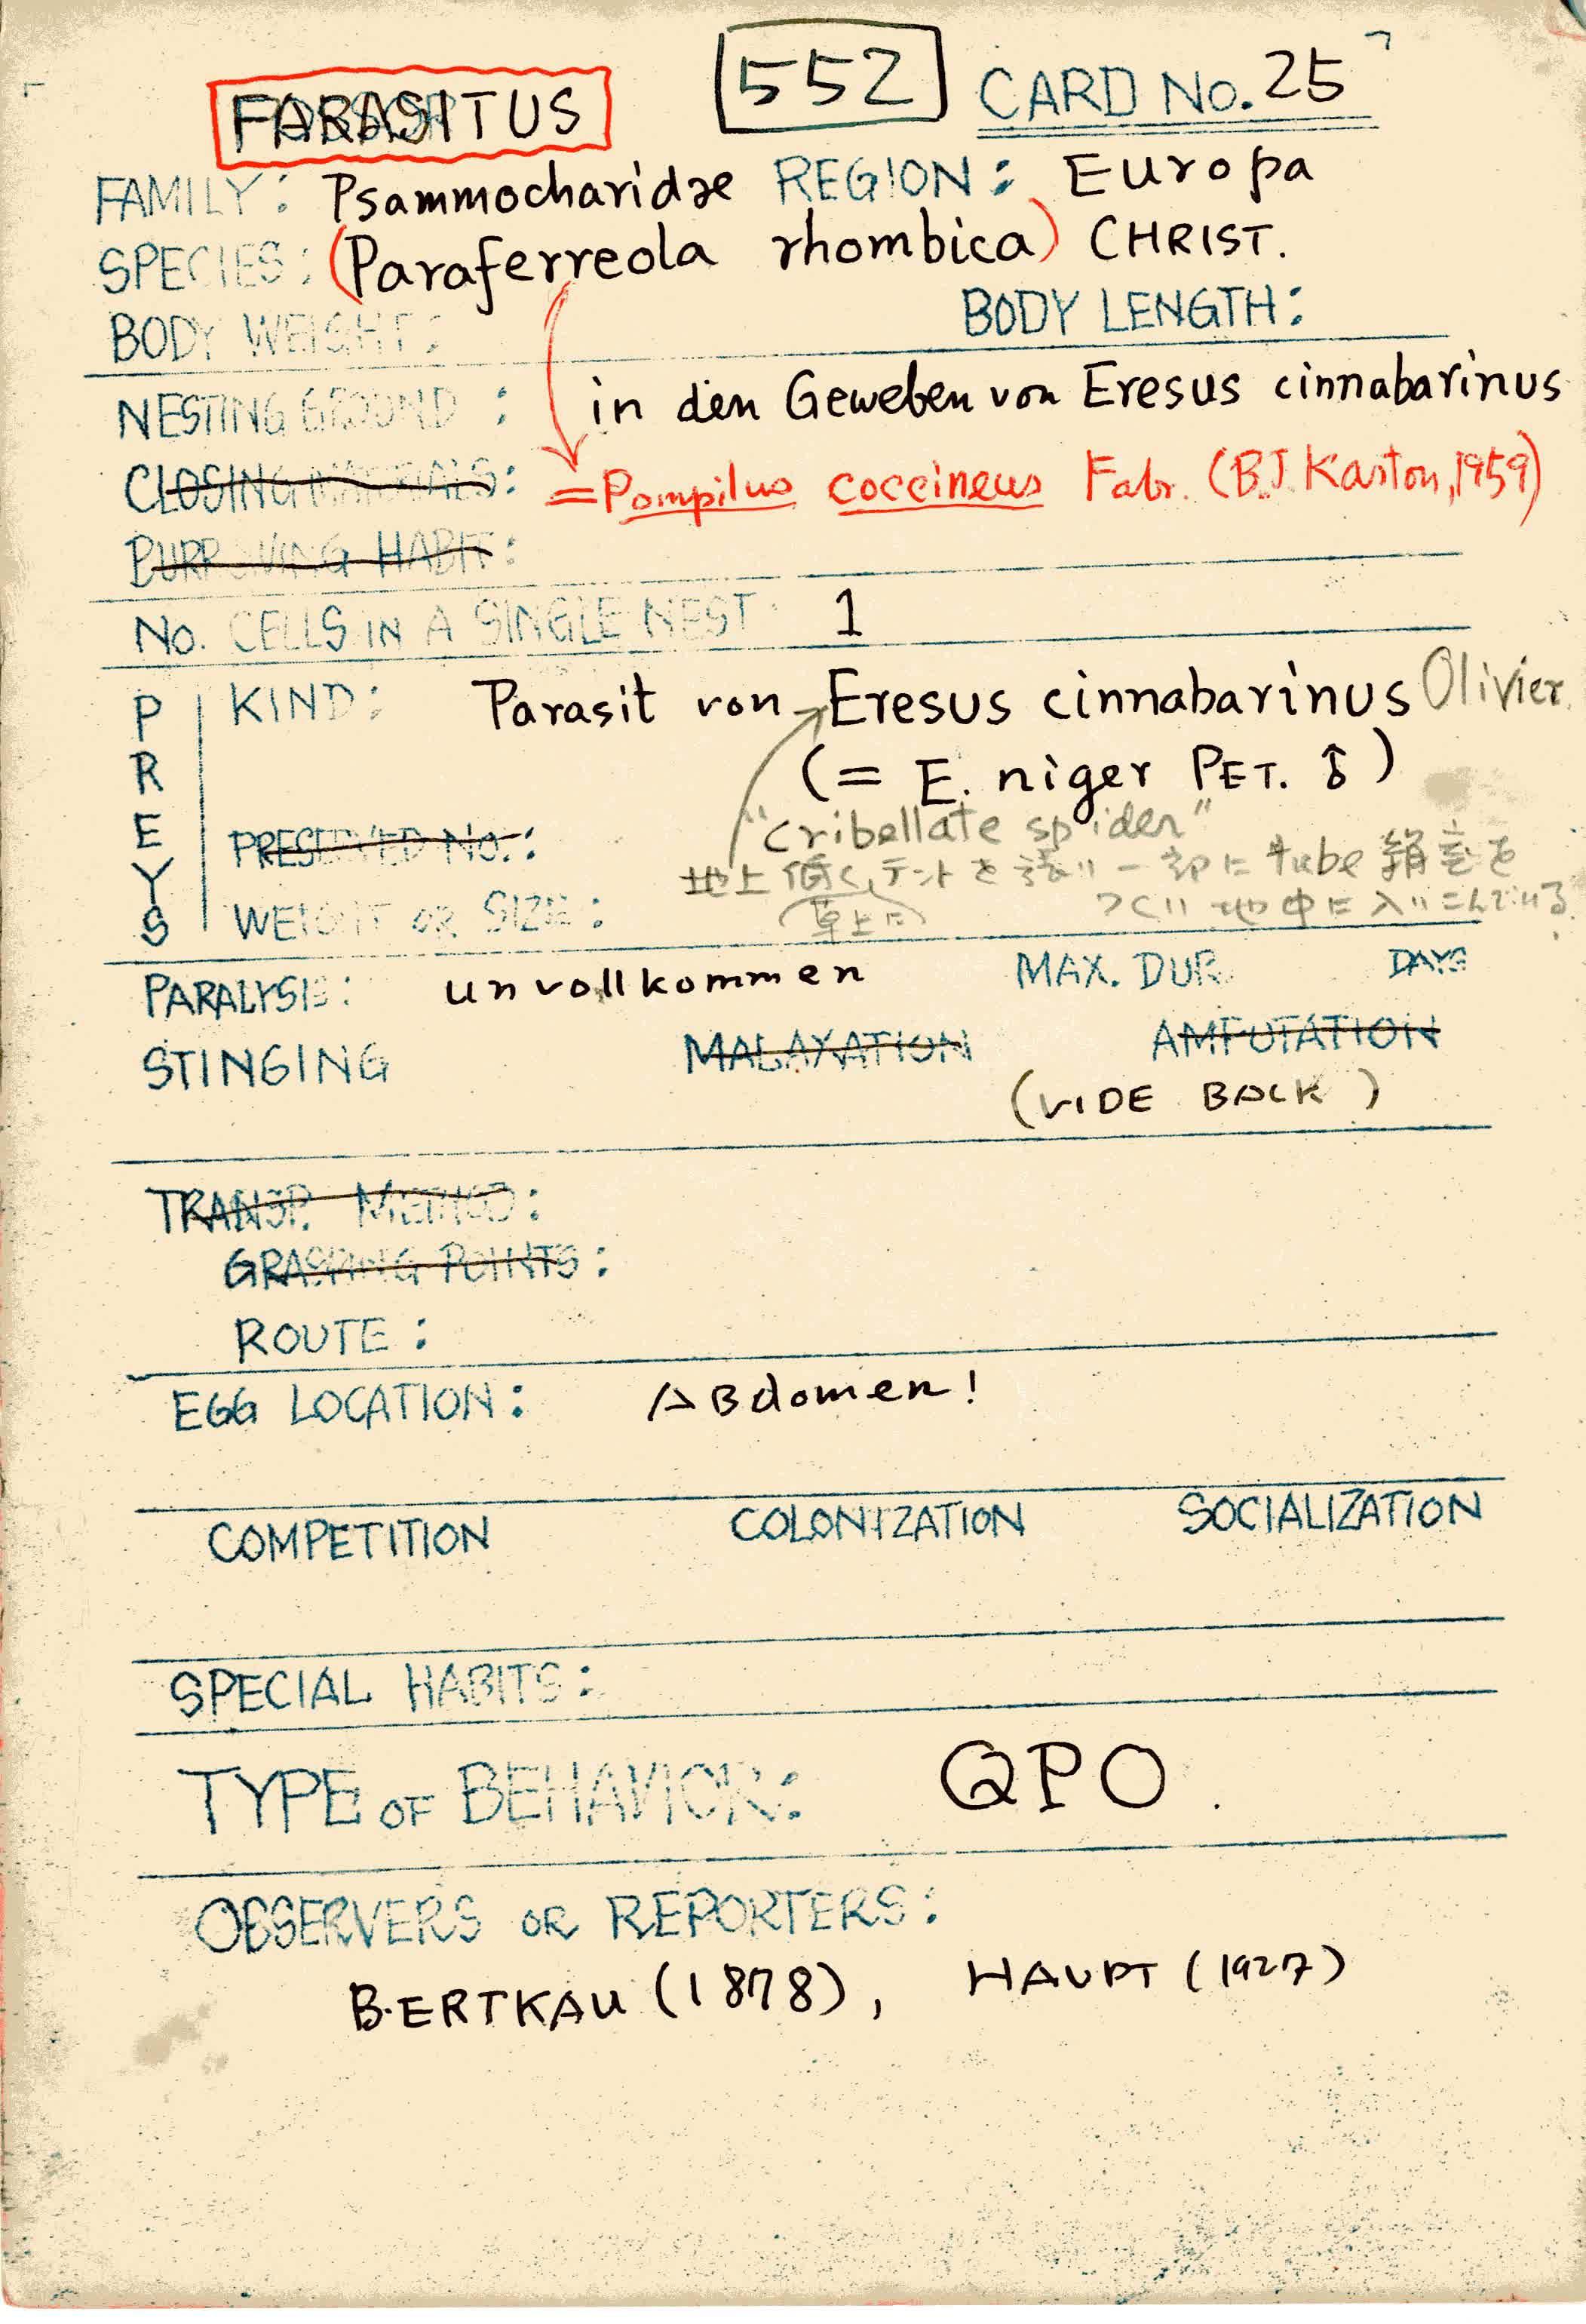 PARASITUS
552 CARD No. 25
FAMILY: Psammocharidae REGION: Europa
SPECIES: (Paraferreola rhombica) CHRIST.
BODY WEIGHT: BODY LENGTH:
NESTING GROUND: in den Geweben von Eresus cinnabarinus
CLOSING MATERIALS: =Pompilus coccineus Fabr. (B.J. Kaston, 1959)
BURROWING HABIT:
No. CELLS IN A SINGLE NEST: 1
PREYS
KIND: Parasit von Eresus cinnabarinus Olivier.
(= E. niger PET. ♂)
"cribellate spider"
PRESERVED No.:
地上低く,テントを張り一部にtube絹室を
(草上に) つくり地中に入りこんでいる.
WEIGHT OR SIZE:
PARALYSIS: unvollkommen MAX. DUR. DAYS
STINGING MALAXATION AMPUTATION
(VIDE BACK)
TRANSP. METHOD:
GRASPING POINTS:
ROUTE:
EGG LOCATION: Abdomen!
COMPETITION COLONIZATION SOCIALIZATION
SPECIAL HABITS:
TYPE OF BEHAVIOR: QPO.
OBSERVERS OR REPORTERS:
BERTKAU (1878), HAUPT (1927)